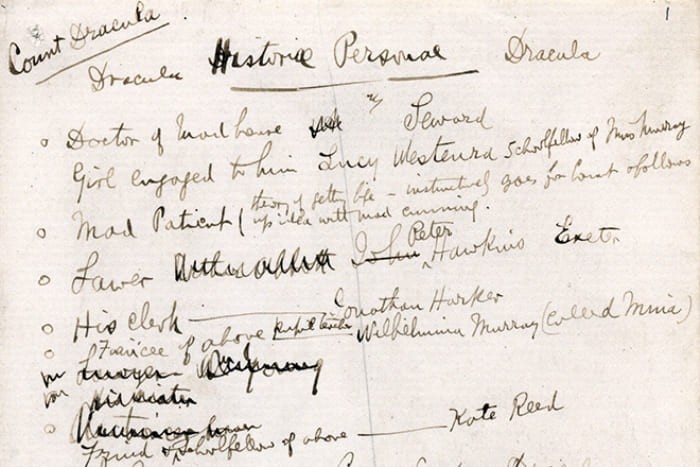 1
Count Dracula
Dracula Historiæ Personae Dracula
Doctor of Madhouse Seward
Girl engaged to him Lucy Westenra Schoolfellow of Miss Murray
Mad Patient (theory of getting life – instinctively goes for Count & follows
up idea with mad cunning.
Lawer John Peter Hawkins Exeter
His Clerk — Jonathan Harker
Fiancee of above pupil teacher Wilhelmina Murray (called Mina)
Lawyer
Friend & Schoolfellow of above — Kate Reed